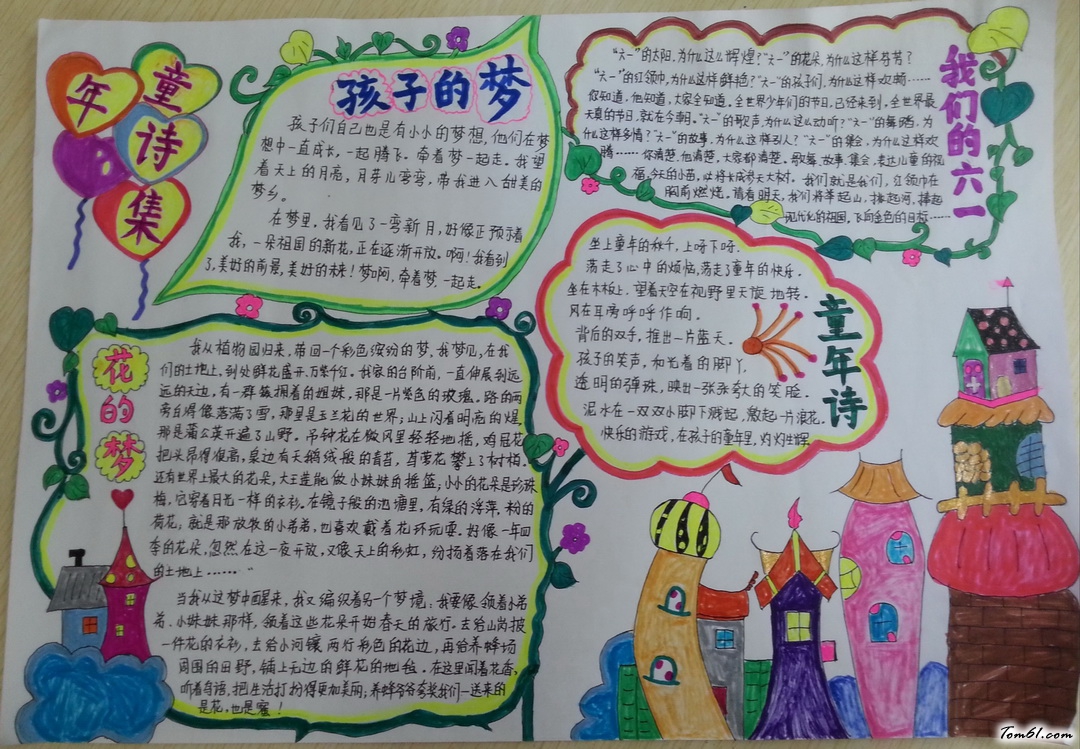 童年诗集
孩子的梦
孩子们自己也是有小小的梦想,他们在梦
想中一直成长,一起腾飞。牵着梦一起走。我望
着天上的月亮,月芽儿弯弯,带我进入甜美的
梦乡。
在梦里,我看见了一弯新月,好像正预示着
我,一朵祖国的新花,正在逐渐开放。啊!我看到
了,美好的前景,美好的未来!梦啊,牵着梦,一起走。
我们的六一
“六一”的太阳,为什么这么辉煌?“六一”的花朵,为什么这样芬芳?
“六一”的红领巾,为什么这样鲜艳?“六一”的孩子们,为什么这样欢畅……
你知道,他知道,大家全知道。全世界少年们的节日,已经来到,全世界最
大良的节日,就在今朝。“六一”的歌声,为什么这么动听?“六一”的舞蹈,为
什么这样多情?“六一”的故事,为什么这样引人?“六一”的集会,为什么这样欢
腾……你清楚,他清楚,大家都清楚。歌舞,故事,集会,表达儿童的祝
福,今天的小苗,必将长成参天大树。我们就是我们,红领巾在
胸前燃烧。请看明天,我们将举起山,捧起河,捧起
现代化的祖国,飞向金色的目标……
童年诗
坐上童年的秋千,上呀下呀。
荡走了心中的烦恼,荡走了童年的快乐。
坐在木板上,望着天空在视野里天旋地转。
风在耳旁呼呼作响。
背后的双手,推出一片蓝天。
孩子的笑声,和光着的脚丫,
透明的弹珠,映出一张张夸大的笑脸。
泥水在一双双小脚下溅起,激起一片浪花。
快乐的游戏,在孩子的童年里,灼灼生辉
花的梦
我从植物园归来,带回一个彩色缤纷的梦,我梦见,在我
们的土地上,到处鲜花盛开,万紫千红。我家的台阶前,一直伸展到远
远的天边,有一群簇拥着的姐妹,那是一片紫色的玫瑰。路的两
旁白得像落满了雪,哪里是玉兰花的世界;山上闪着明亮的煌,
那是蒲公英开遍了山野。吊钟花在微风里轻轻地摇,鸡冠花
把头昂得很高,桌边有天鹅绒般的青苔,茑萝花攀上了树梢。
还有世界上最大的花朵,大王莲能做小妹妹的摇篮,小小的花朵是珍珠
梅,它穿着月光一样的衣衫。在镜子般的池塘里,有绿的浮萍,粉的
荷花,就是那放牧的小弟弟,也喜欢戴着花环玩耍。好像一年四
季的花朵,忽然在这一夜开放,又像天上的彩虹,纷扬着落在我们
的土地上……”
当我从这梦中醒来,我又编织着另一个梦境:我要像领着小弟
弟、小妹妹那样,领着这些花朵开始春天的旅行。去给山岗披
一件花的衣衫,去给小河镶两行彩色的花边,再给养蜂场
周围的田野,铺上无边的鲜花的地毯。在这里闻着花香,
听着鸟语,把生活打扮得更加美丽;养蜂爷爷夸奖我们一送来的
是花,也是蜜!
Tom61.com